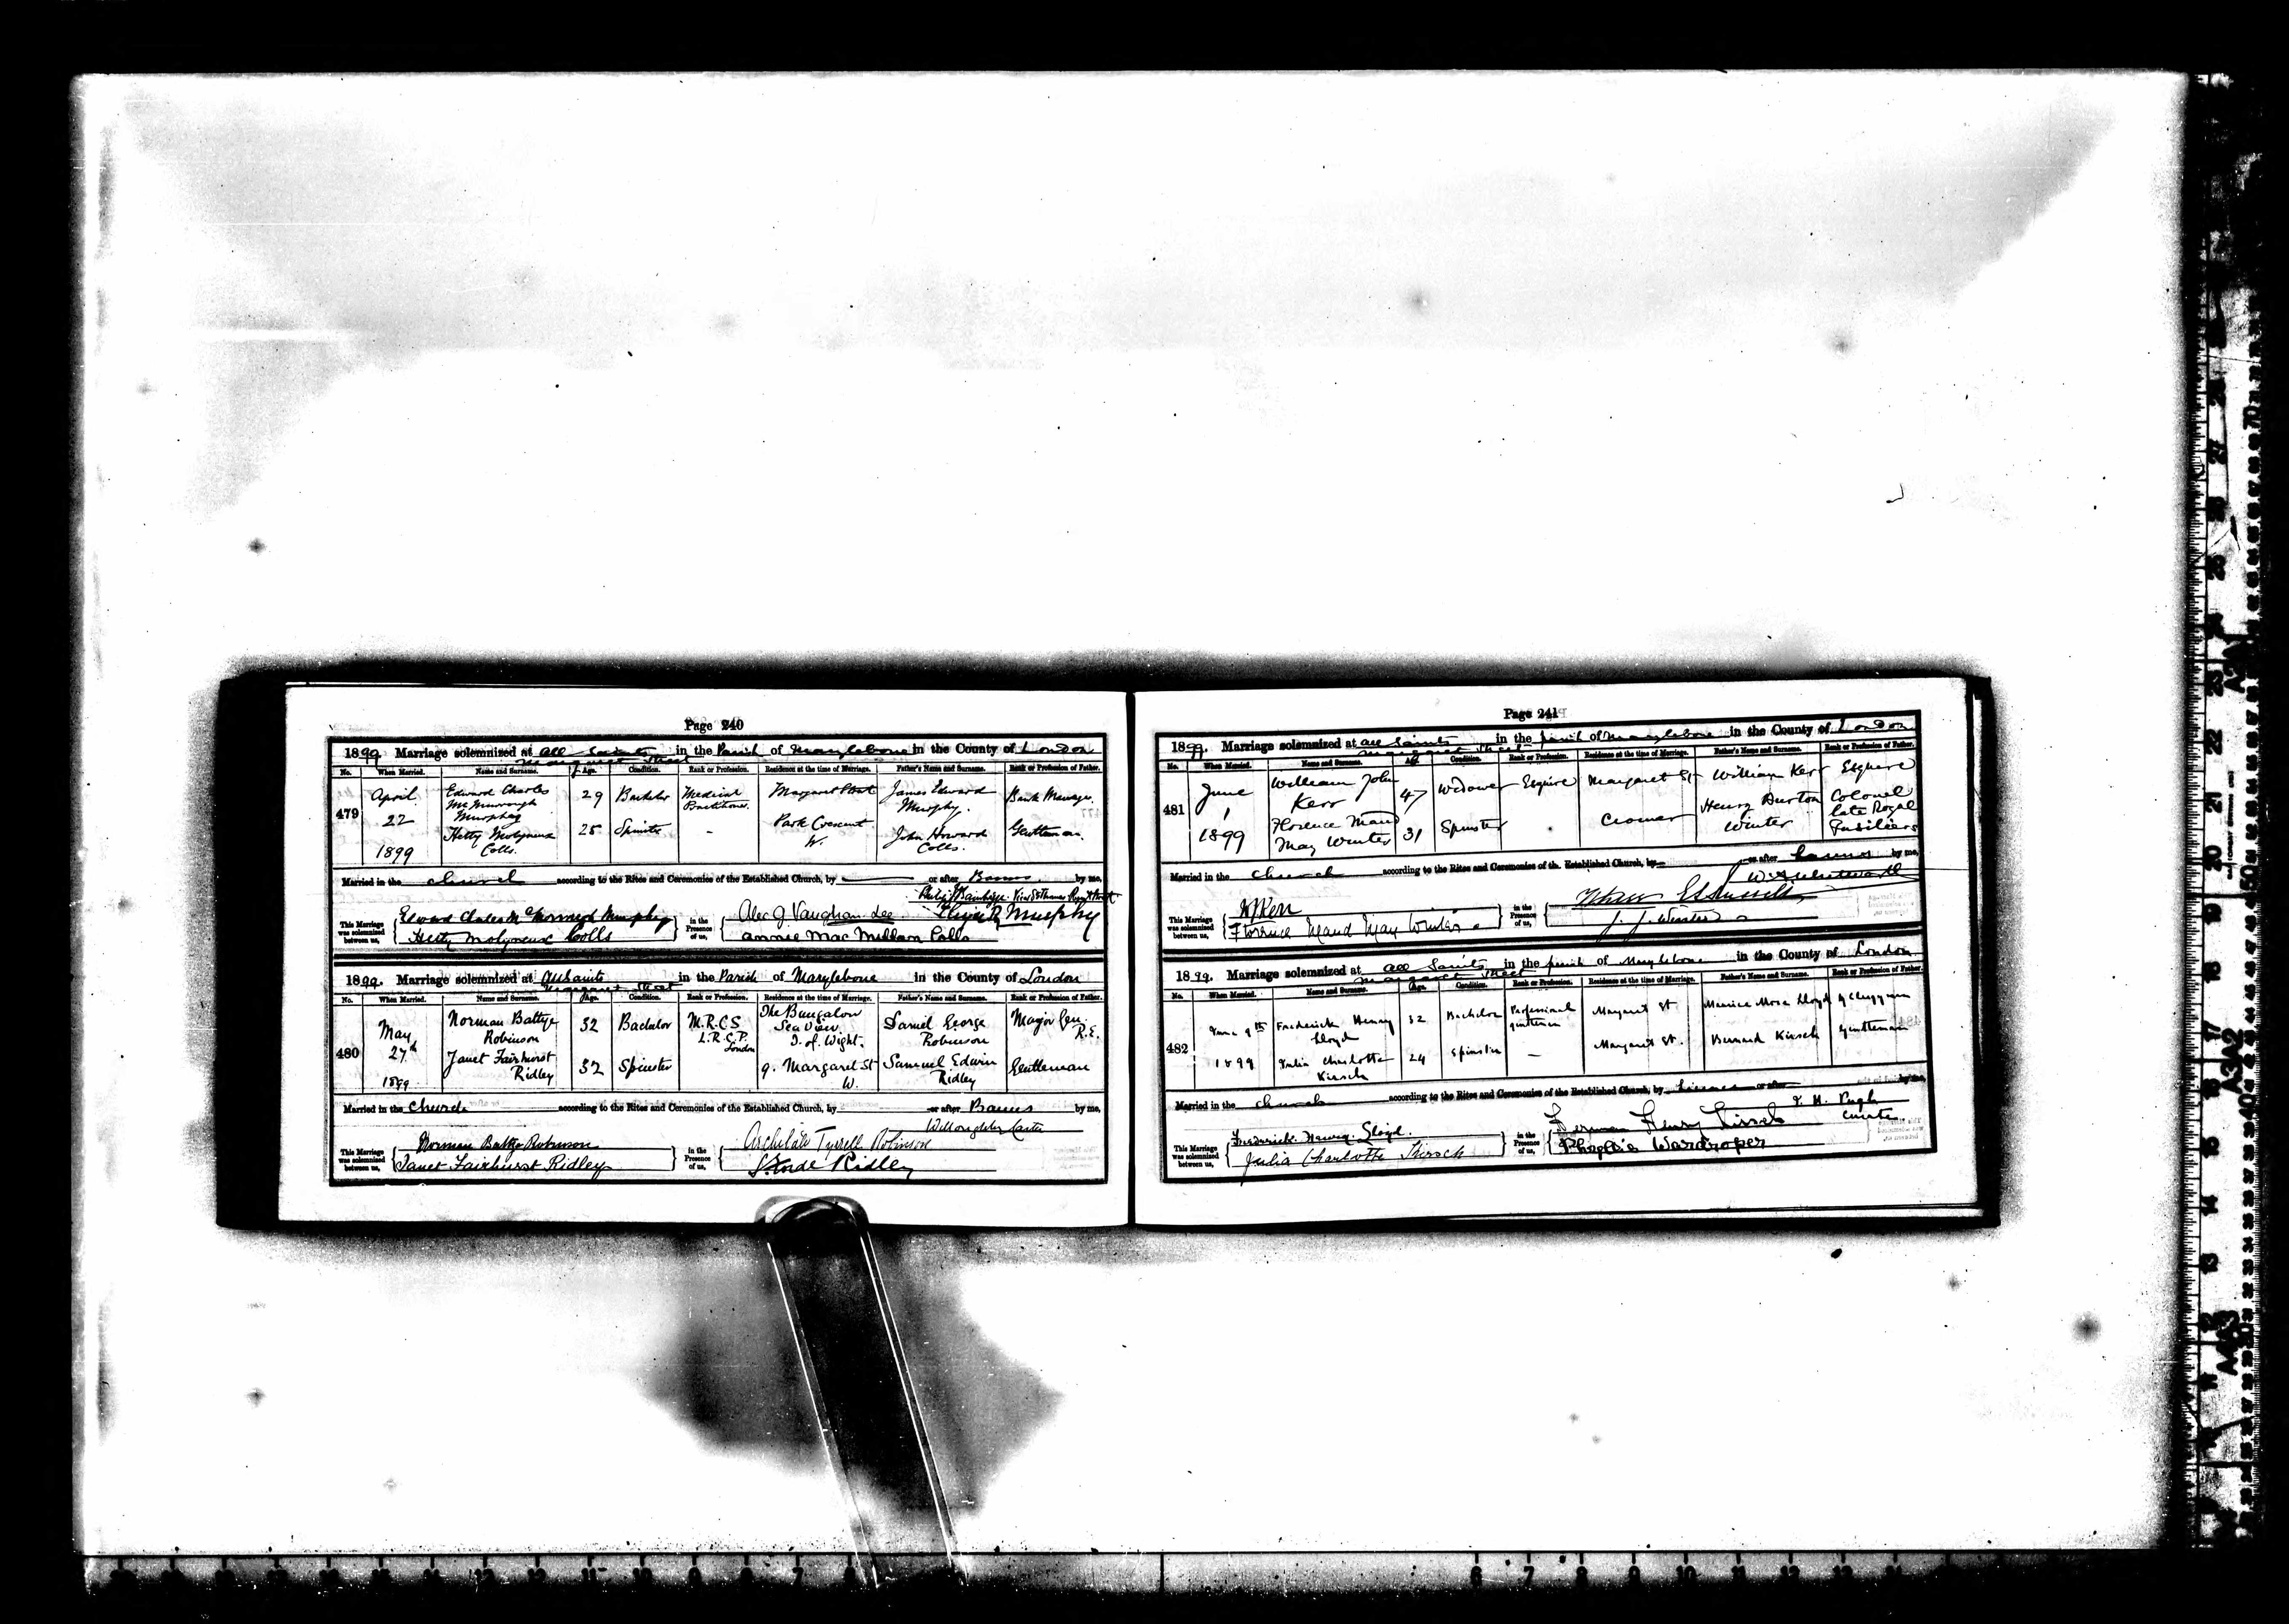 Page 240
1899. Marriage solemnized at All Saints in the Parish of Marylebone in the County of London
Margaret Street
No. When Married. Name and Surname. Age. Condition. Rank or Profession. Residence at the time of Marriage. Father's Name and Surname. Rank or Profession of Father.
479 April 22 1899
Edward Charles McMurrough Murphy 29 Bachelor Medical Practitioner Margaret Street James Edward Murphy. Bank Manager.
Hetty Molyneux Colls. 25 Spinster - Park Crescent W. John Howard Colls. Gentleman.
Married in the church according to the Rites and Ceremonies of the Established Church, by or after Banns by me,
This Marriage was solemnized between us,
Murphy
Hetty Molyneux Colls
in the Presence of us,
Alec G Vaughan Lee Murphy
Annie Mac Millan Colls
1899. Marriage solemnized at All Saints in the Parish of Marylebone in the County of London
Margaret Street
No. When Married. Name and Surname. Age. Condition. Rank or Profession. Residence at the time of Marriage. Father's Name and Surname. Rank or Profession of Father.
480 May 27th 1899
Norman Battye Robinson 32 Bachelor M.R.C.S L.R.C.P. London The Bungalow Sea View I. of Wight. Daniel George Robinson Major Gen. R.E.
Janet Fairhurst Ridley 32 Spinster 9. Margaret St W. Samuel Edwin Ridley Gentleman
Married in the church according to the Rites and Ceremonies of the Established Church, by or after Banns by me,
Willoughby Carter
This Marriage was solemnized between us,
Norman Battye Robinson
Janet Fairhurst Ridley
in the Presence of us,
Tyrrell Robinson
Ridley
Page 241
1899. Marriage solemnized at All Saints in the parish of Marylebone in the County of London
Margaret Street
No. When Married. Name and Surname. Age. Condition. Rank or Profession. Residence at the time of Marriage. Father's Name and Surname. Rank or Profession of Father.
481 June 1 1899
William John Kerr 47 Widower Esquire Margaret St William Kerr Esquire
Florence Maud May Winter 31 Spinster Cromer Henry Burton Winter Colonel late Royal Fusiliers
Married in the church according to the Rites and Ceremonies of the Established Church, by or after by me,
This Marriage was solemnized between us,
WJKerr
Florence Maud May Winter
in the Presence of us,
J. J. Winter
1899. Marriage solemnized at All Saints in the parish of Marylebone in the County of London
Margaret Street
No. When Married. Name and Surname. Age. Condition. Rank or Profession. Residence at the time of Marriage. Father's Name and Surname. Rank or Profession of Father.
482 June 9th 1899
Frederick Henry Lloyd 32 Bachelor Professional gentleman Margaret St Maurice Lloyd Clergyman
Julia Charlotte Kirsch 24 Spinster - Margaret St. Bernard Kirsch Gentleman
Married in the church according to the Rites and Ceremonies of the Established Church, by License or after by me,
Pugh
Curate.
This Marriage was solemnized between us,
Frederick Henry Lloyd.
Julia Charlotte Kirsch
in the Presence of us,
Herman Henry Kirsch
Wardroper